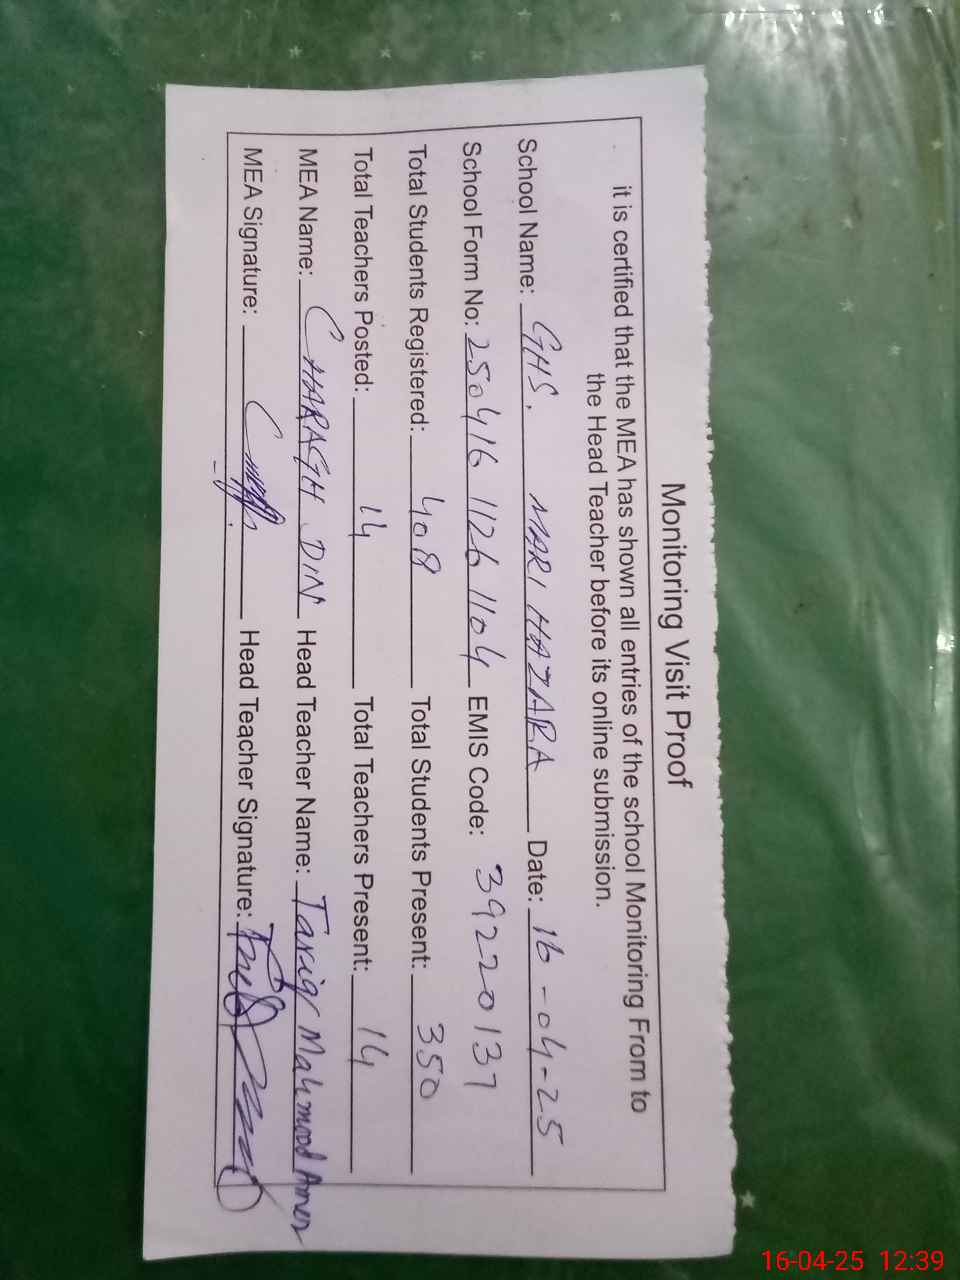 Monitoring Visit Proof
it is certified that the MEA has shown all entries of the school Monitoring From to
the Head Teacher before its online submission.
School Name: GHS. MARI HAZARA Date: 16-04-25
School Form No: 250416 1126 1104 EMIS Code: 39220137
Total Students Registered: 408 Total Students Present: 350
Total Teachers Posted: 14 Total Teachers Present: 14
MEA Name: CHARAGH DIN Head Teacher Name: Tariq Mahmood Amer
MEA Signature: Head Teacher Signature:
16-04-25 12:39